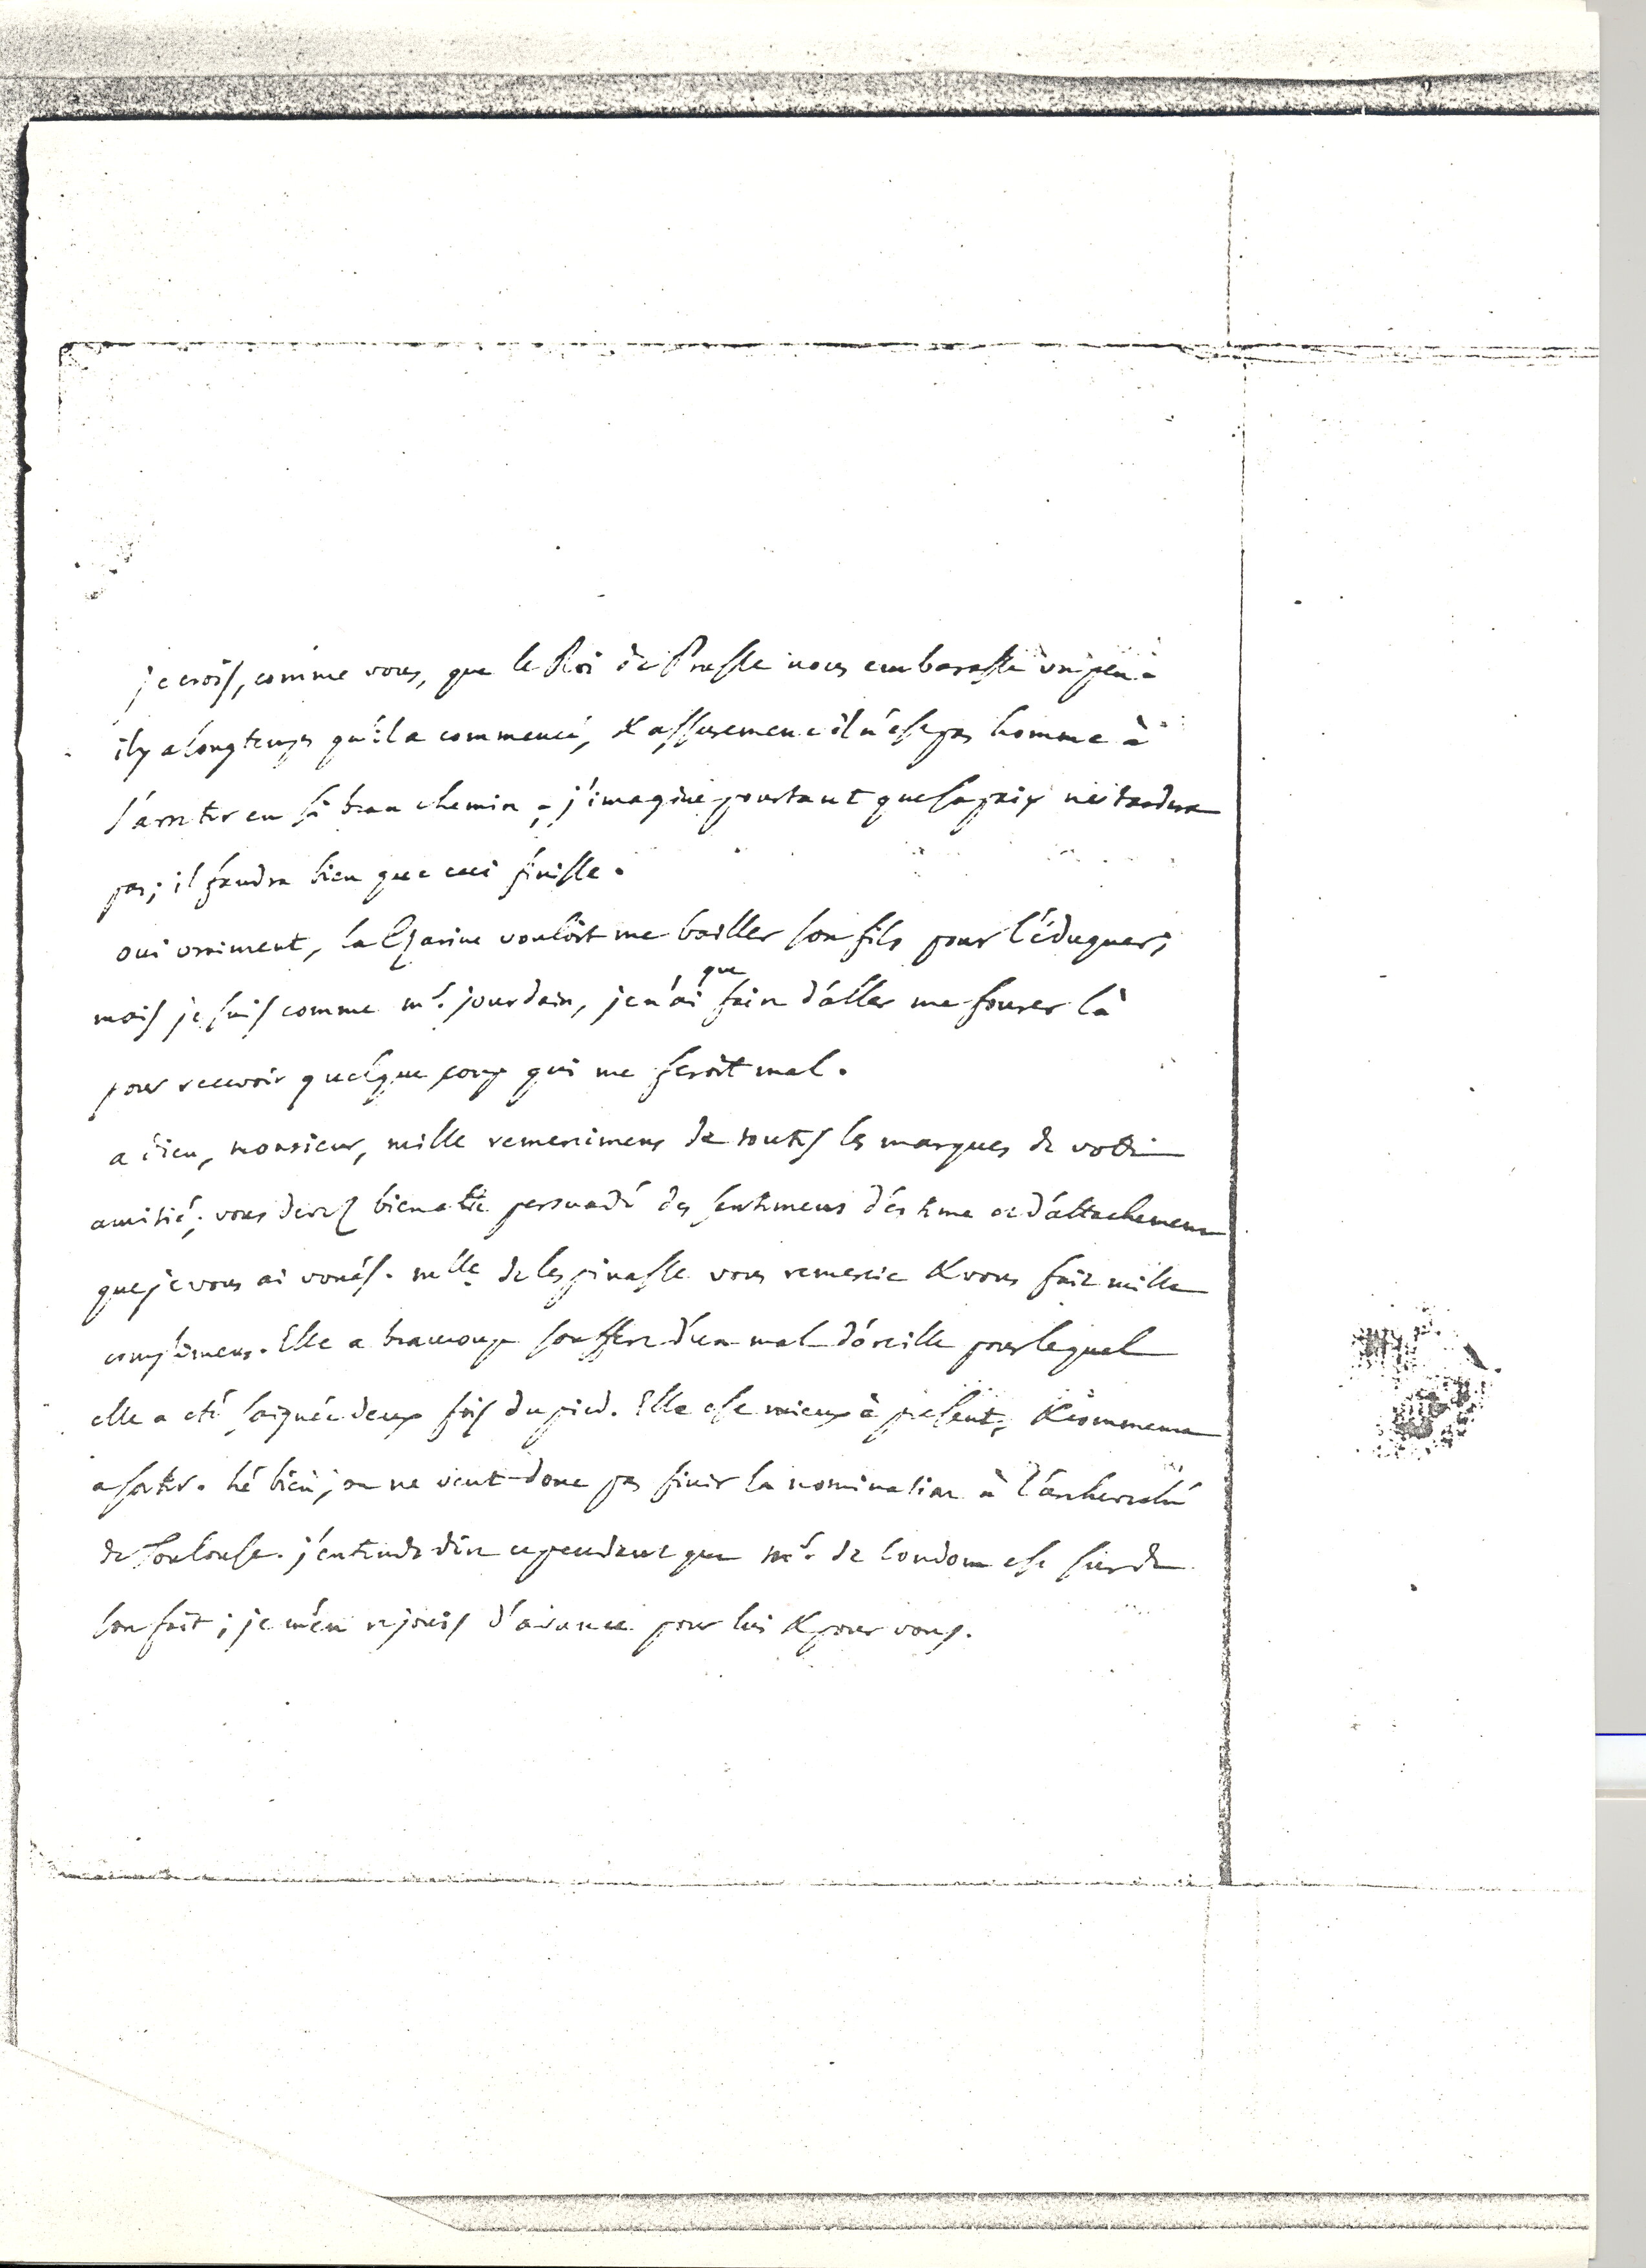 je crois, comme vous, que le Roi de Prusse nous embarasse un peu.
il y a longtemps qu'il a commencé, & assurement il n'est pas homme à
s'arreter en si beau chemin. j'imagine pourtant que la paix ne tardera
pas; il faudra bien que ceci finisse.
oui vraiment, la Czarine vouloit me bailler son fils pour l'éduquer;
mais je suis comme mr. jourdain, je n'ai que faire d'aller me fourer là
pour recevoir quelque coup qui me feroit mal.
adieu, monsieur, mille remercimens de toutes les marques de votre
amitié; vous devez bien etre persuadé des sentimens d'estime et d'attachement
que je vous ai voués. melle de lespinasse vous remercie & vous fait mille
complimens. Elle a beaucoup souffert d'un mal d'oreille pour lequel
elle a eté saignée deux fois du pied. Elle est mieux à present, & commence
a sortir. hé bien, on ne veut donc pas finir la nomination à l'archeveché
de Toulouse. j'entends dire cependant que mr. de Condom est sur de
son fait; je m'en rejouis d'avance pour lui & pour vous.